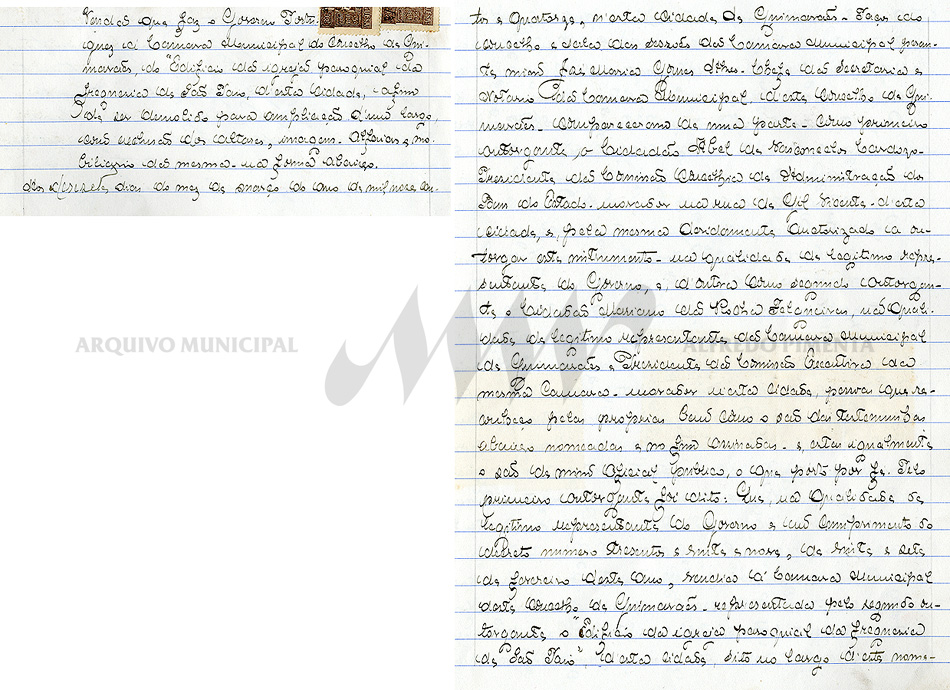 Venda que faz o Governo Portu-
guez á Camara Municipal do Concelho de Gui-
marães, do "Edificio da igreja parochial da
freguezia de São Paio, d'esta cidade, afim
de ser demolido para ampliação d'um largo,
com exclusão dos altares, imagens, alfaias e mo-
biliario da mesma - na forma abaixo.
Aos dias do mez de março do anno de mil nove cen-
tos e quatorze, n'esta cidade de Guimarães - Paços do
concelho e sala das sessões da Camara Municipal peran-
te mim José Maria Gomes Alves - Chefe da Secretaria e
Notario da Camara Municipal, d'este concelho de Gui-
marães - compareceram de uma parte - como primeiro
outorgante o cidadão Abel de Vasconcelos Cardozo -
Presidente da Comissão Concelhia de Administração dos
Bens do Estado - morador na rua de Gil Vicente - d'esta
cidade, e, pela mesma devidamente auctorizado a ou-
torgar este instrumento - na qualidade de legitimo repre-
sentante do Governo, e, d'outra como segundo outorgan-
te o cidadão Mariano da Rocha Felgueiras, na quali-
dade de legitimo representante da Camara Municipal
de Guimarães e Presidente da Comissão Executiva da
mesma Camara - morador n'esta cidade, pessoas que re-
conheço pelas proprias bem como o são das testemunhas
abaixo nomeadas e no fim assinadas - e, estas igualmente
o são de mim oficial publico, o que porto por fé. Pelo
primeiro outorgante foi dito: Que, na qualidade de
legitimo representante do Governo e em cumprimento do
decreto numero trezentos e vinte e nove, de vinte e sete
de fevereiro deste ano, vendia á Camara Municipal
deste concelho de Guimarães - representada pelo segundo ou-
torgante o "Edificio da igreja paroquial da freguezia
de São Paio", d'esta cidade, sito no largo d'este nome -
ARQUIVO MUNICIPAL
ALFREDO PIMENTA